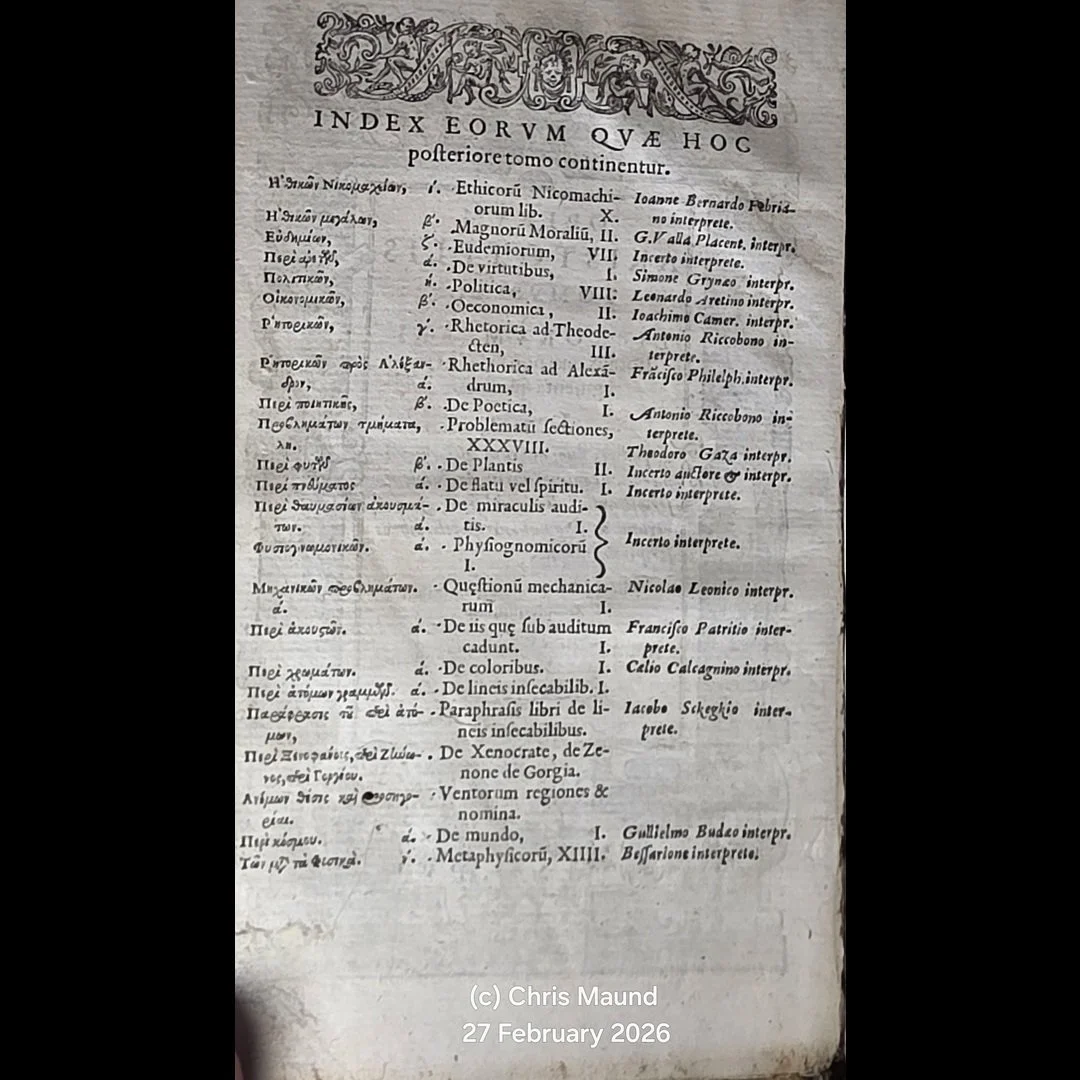 INDEX EORVM QVÆ HOC
poſteriore tomo continentur.
Ἠθικῶν Νικομαχείων, ί. Ethicorũ Nicomachi- Ioanne Bernardo Febria-
orum lib. X. no interprete.
Ἠθικῶν μεγάλων, β'. Magnorũ Moraliũ, II. G.Valla Placent. interpr.
Εὐδημίων, ζ. Eudemiorum, VII. Incerto interprete.
Περὶ ἀρετῶν, ά. De virtutibus, I. Simone Grynæo interpr.
Πολιτικῶν, ή. Politica, VIII: Leonardo Aretino interpr.
Οἰκονομικῶν, β'. Oeconomica, II. Ioachimo Camer. interpr.
Ῥητορικῶν, γ'. Rhetorica ad Theode- Antonio Riccobono in-
cten, III. terprete.
Ῥητορικῶν πρὸς Ἀλέξαν- Rhethorica ad Alexã- Frãciſco Philelph.interpr.
δρον, ά. drum, I.
Περὶ ποιητικῆς, β'. De Poetica, I. Antonio Riccobono in-
terprete.
Προβλημάτων τμήματα, Problematũ ſectiones,
λη. XXXVIII. Theodoro Gaza interpr.
Περὶ φυτῶν β'. De Plantis II. Incerto auctore & interpr.
Περὶ πνεύματος ά. De flatu vel ſpiritu. I. Incerto interprete.
Περὶ θαυμασίων ἀκουσμά- De miraculis audi-
των. ά. tis. I.
Incerto interprete.
Φυσιογνωμονικῶν. ά. Phyſiognomicorũ
I.
Μηχανικῶν προβλημάτων. Quęſtionũ mechanica- Nicolao Leonico interpr.
ά. rum I.
Περὶ ἀκουστῶν. ά. De iis quę ſub auditum Franciſco Patritio inter-
cadunt. I. prete.
Περὶ χρωμάτων. ά. De coloribus. I. Cælio Calcagnino interpr.
Περὶ ἀτόμων γραμμῶν. ά. De lineis inſecabilib. I.
Παράφρασις τοῦ περὶ ἀτό- Paraphraſis libri de li- Iacobo Sckegkio inter-
μων, neis inſecabilibus. prete.
Περὶ Ξενοφάνους, περὶ Ζήνω- De Xenocrate, de Ze-
νος, περὶ Γοργίου. none de Gorgia.
Ἀνέμων θέσεις καὶ προσηγο- Ventorum regiones &
ρίαι. nomina.
Περὶ κόσμου. ά. De mundo, I. Gulielmo Budæo interpr.
Τῶν μετὰ τὰ Φυσικὰ. De Metaphyſicorũ, XIIII. Beſſarione interprete.
(c) Chris Maund
27 February 2026